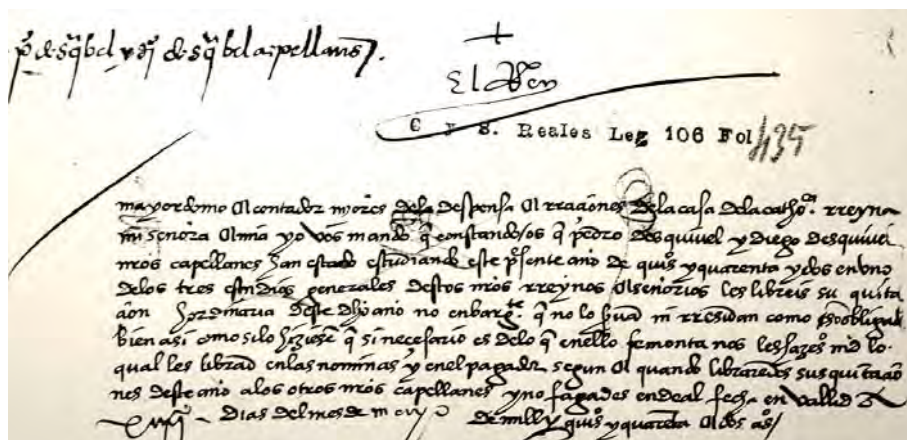 po de esqibel y do de esqibel capellanes.
El Rey
C y S. Reales Leg 106 Fol 435
mayordomo e contador mores dela despensa e rraciones dela casa dela catho. rreyna
mi señora e mia yo vos mando q constandoos q pedro desquivel y diego desquivel
mros capellanes han estado estudiando este psente año de quios y quarenta y dos en uno
delos tres estudios generales destos mros rreynos e señorios les libreis su quita
cion hordinaria deste dho año no enbargte q no lo sirvan ni rresidan como son obligados
bien asi como silo hiziesen q si necesario es delo q enello se monta nos les hazemos md lo
qual les librad enlas nominas y enel pagador segun e quando libraredes sus quitacio
nes deste año alos otros mros capellanes y no fagades endeal fecha en vallid a
dias del mes de de mill y quios y quarenta e dos aos